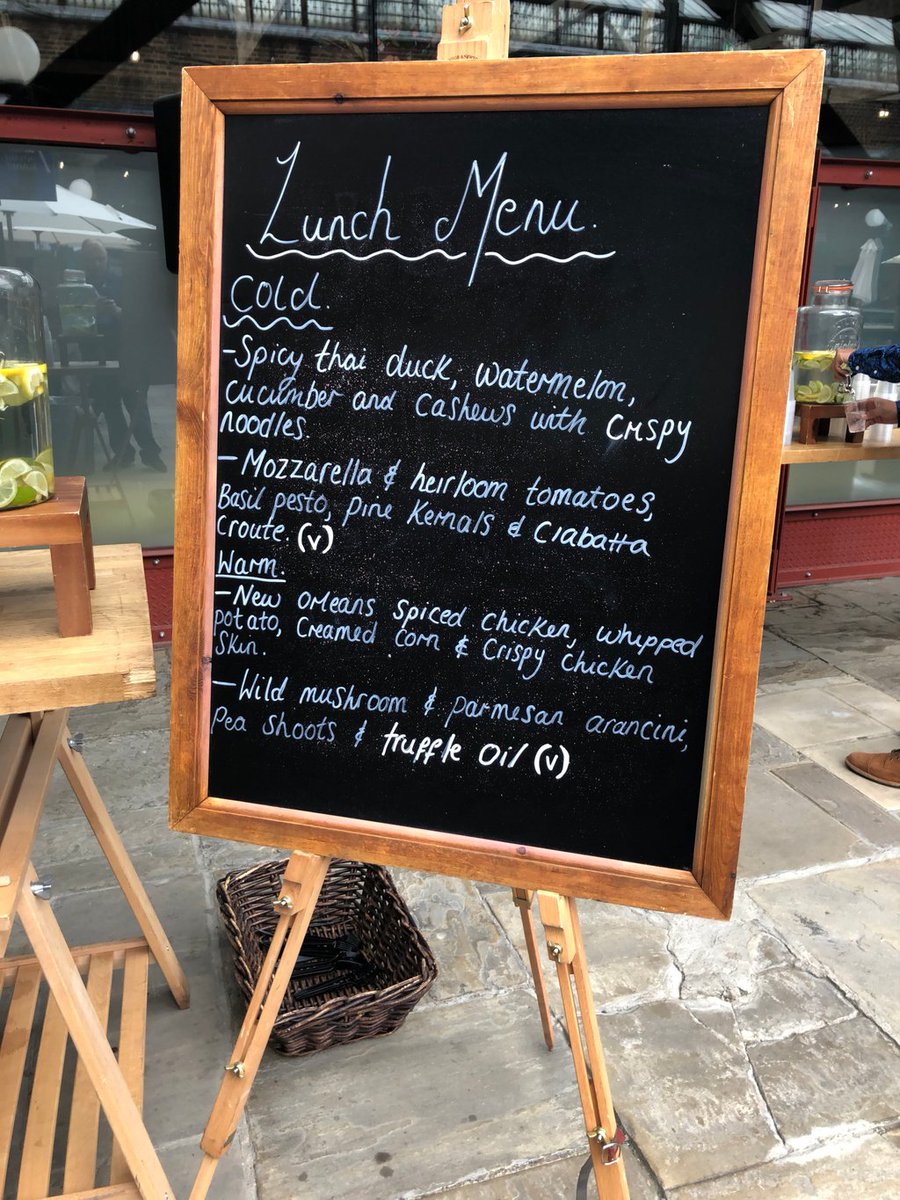 Lunch Menu.
Cold.
-Spicy thai duck, watermelon,
cucumber and cashews with crispy
noodles.
-Mozzarella & heirloom tomatoes,
Basil pesto, pine kernals & Ciabatta
croute. (v)
Warm.
-New orleans spiced chicken, whipped
potato, creamed corn & crispy chicken
skin.
-Wild mushroom & parmesan arancini,
pea shoots & truffle oil (v)